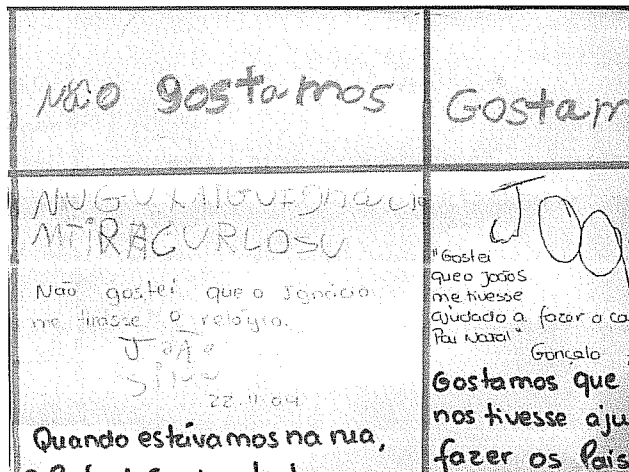 Não gostamos
Não gostei que o Ignácio
me tirasse o relógio.
João
Silva
22.11.04
Quando estávamos na rua,
Gostam
Joo
"Gostei
que o João S
me tivesse
ajudado a fazer a ca
Pai Natal"
Gonçalo
Gostamos que
nos tivesse aju
fazer os Pais